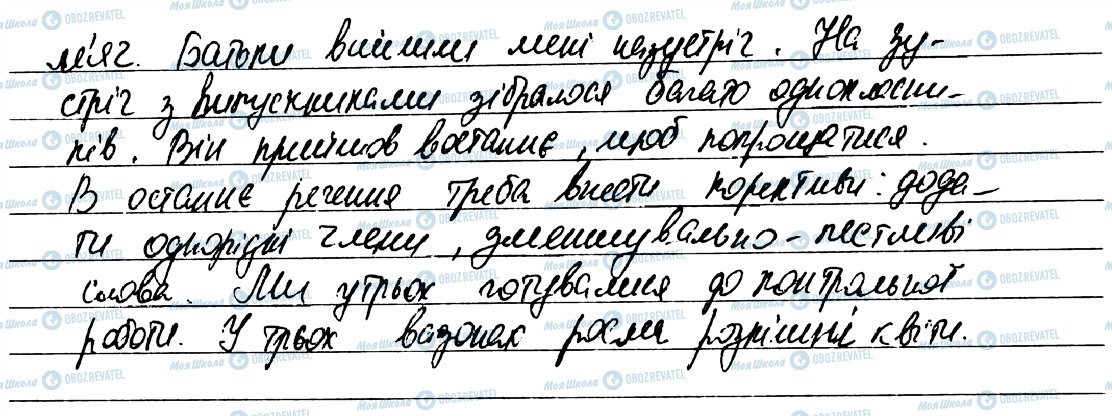 м'яг. Батьки вийшли мені назустріч. На зу-
стріч з випускниками зібралося багато однокласни-
ків. Він прийшов востаннє, щоб попрощатися.
В останнє речення треба внести корективи: дода-
ти однорідні члени, зменшувально-пестливі
слова. Ми утрьох готувалися до контрольної
роботи. У трьох вазонах росли розкішні квіти.